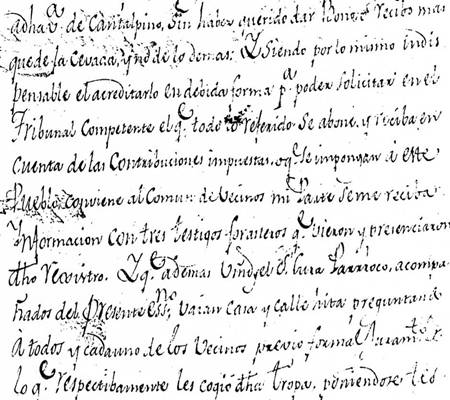 adha vª. de Cantalpino, sin haber querido dar Bono, ni recivos mas
que de la Cevada, y no de lo demas: Y siendo por lo mismo indis
pensable el acreditarlo en debida forma pª. poder solicitar en el
Tribunal Competente el qᵉ. todo lo referido se abone, y reciba en
cuenta de las Contribuciones impuestas, o qᵉ. se impongan á este
Pueblo, combiene al Comun de Vecinos mi Parte se me reciba
Informacion con tres testigos forasteros qᵉ. vieron y presenciaron
dho rexistro. Y qᵉ. ademas Vmd, y el Sʳ. Cura Parroco, acompa
ñados del Presente Essⁿᵒ. vaian casa y calle hita preguntando
á todos y cada uno de los Vecinos previo formal Juramᵗᵒ.
lo qᵉ. respectibamente les cogió dha tropa, poniendose